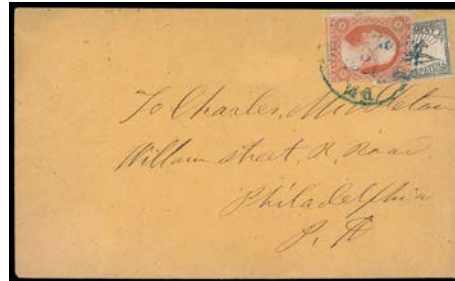 Md
To Charles, Middleton
Willow street R. Road
Philadelphia
P. A